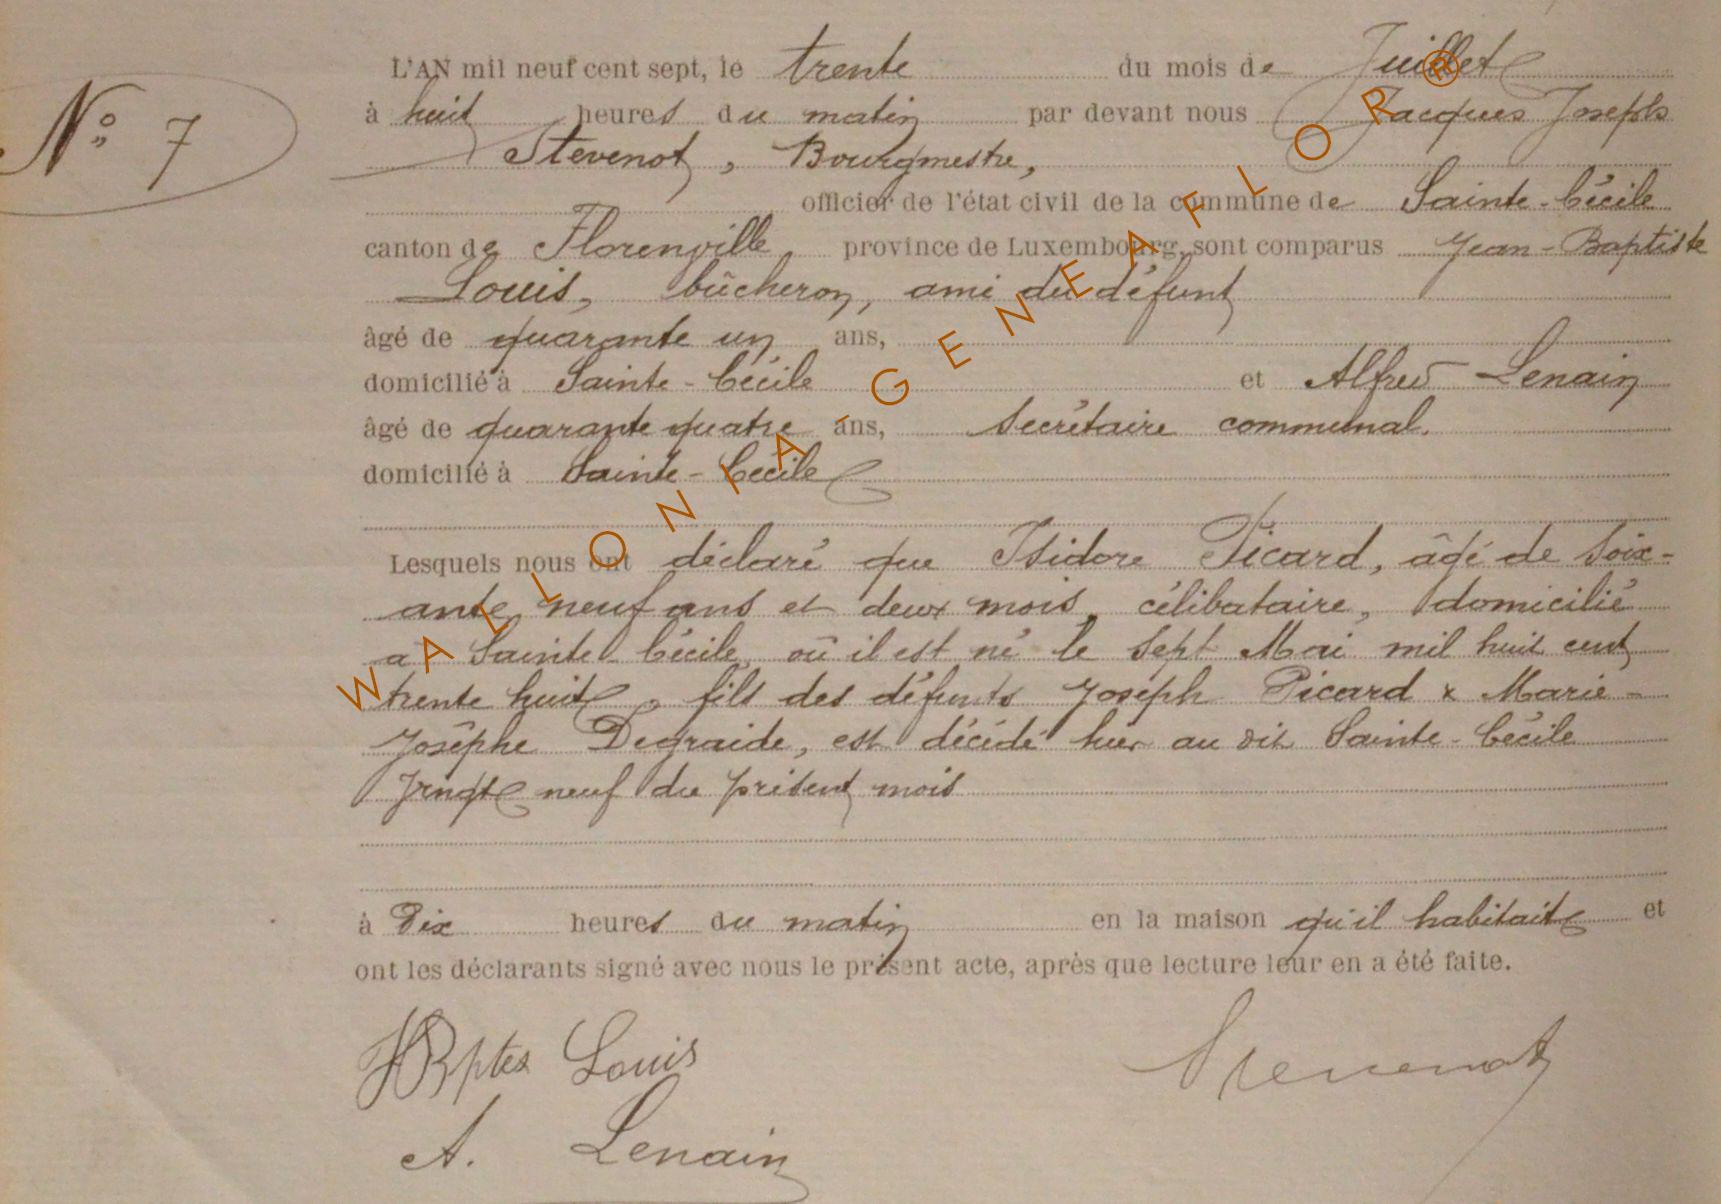 N° 7
L'AN mil neuf cent sept, le trente du mois de Juillet
à huit heures du matin par devant nous Jacques Joseph
Stevenot, Bourgmestre,
officier de l'état civil de la commune de Sainte-Cécile
canton de Florenville province de Luxembourg, sont comparus Jean-Baptiste
Louis, bûcheron, ami du défunt
âgé de quarante un ans,
domicilié à Sainte-Cécile et Alfred Lenain
âgé de quarante quatre ans, secrétaire communal.
domicilié à Sainte-Cécile
Lesquels nous ont déclaré que Isidore Picard, âgé de soix-
ante neuf ans et deux mois, célibataire, domicilié
à Sainte-Cécile, où il est né le sept Mai mil huit cent
trente huit, fils des défunts Joseph Picard & Marie-
Josèphe Degraide, est décédé hier au dit Sainte-Cécile
vingt neuf du présent mois
à Dix heures du matin en la maison qu'il habitait et
ont les déclarants signé avec nous le présent acte, après que lecture leur en a été faite.
JBptes Louis Stevenot
A. Lenain
WALLONIA-GENEAFLOR®